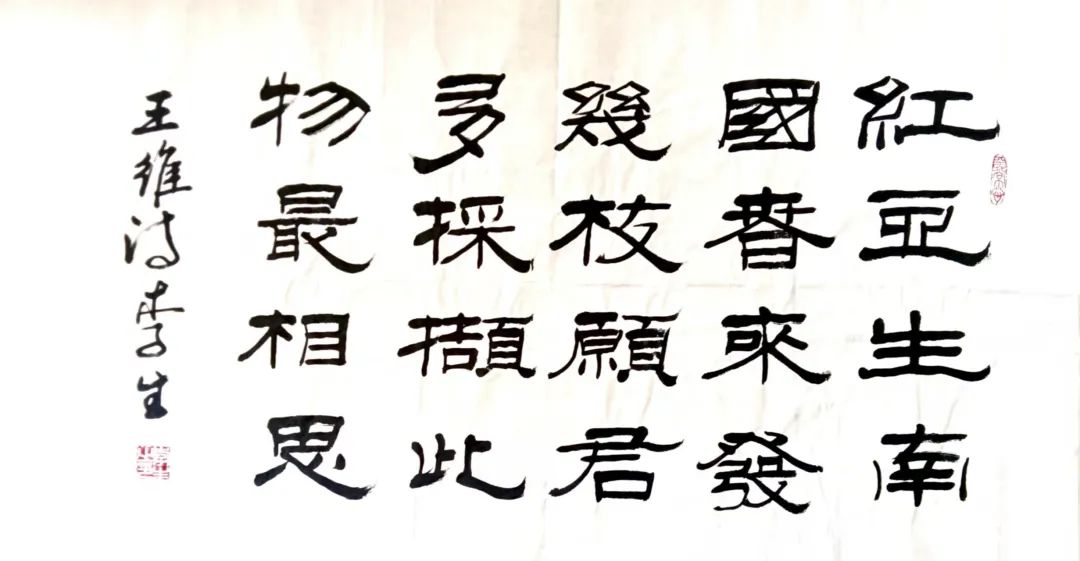 紅豆生南
國春來發
幾枝願君
多採擷此
物最相思
王維詩李生